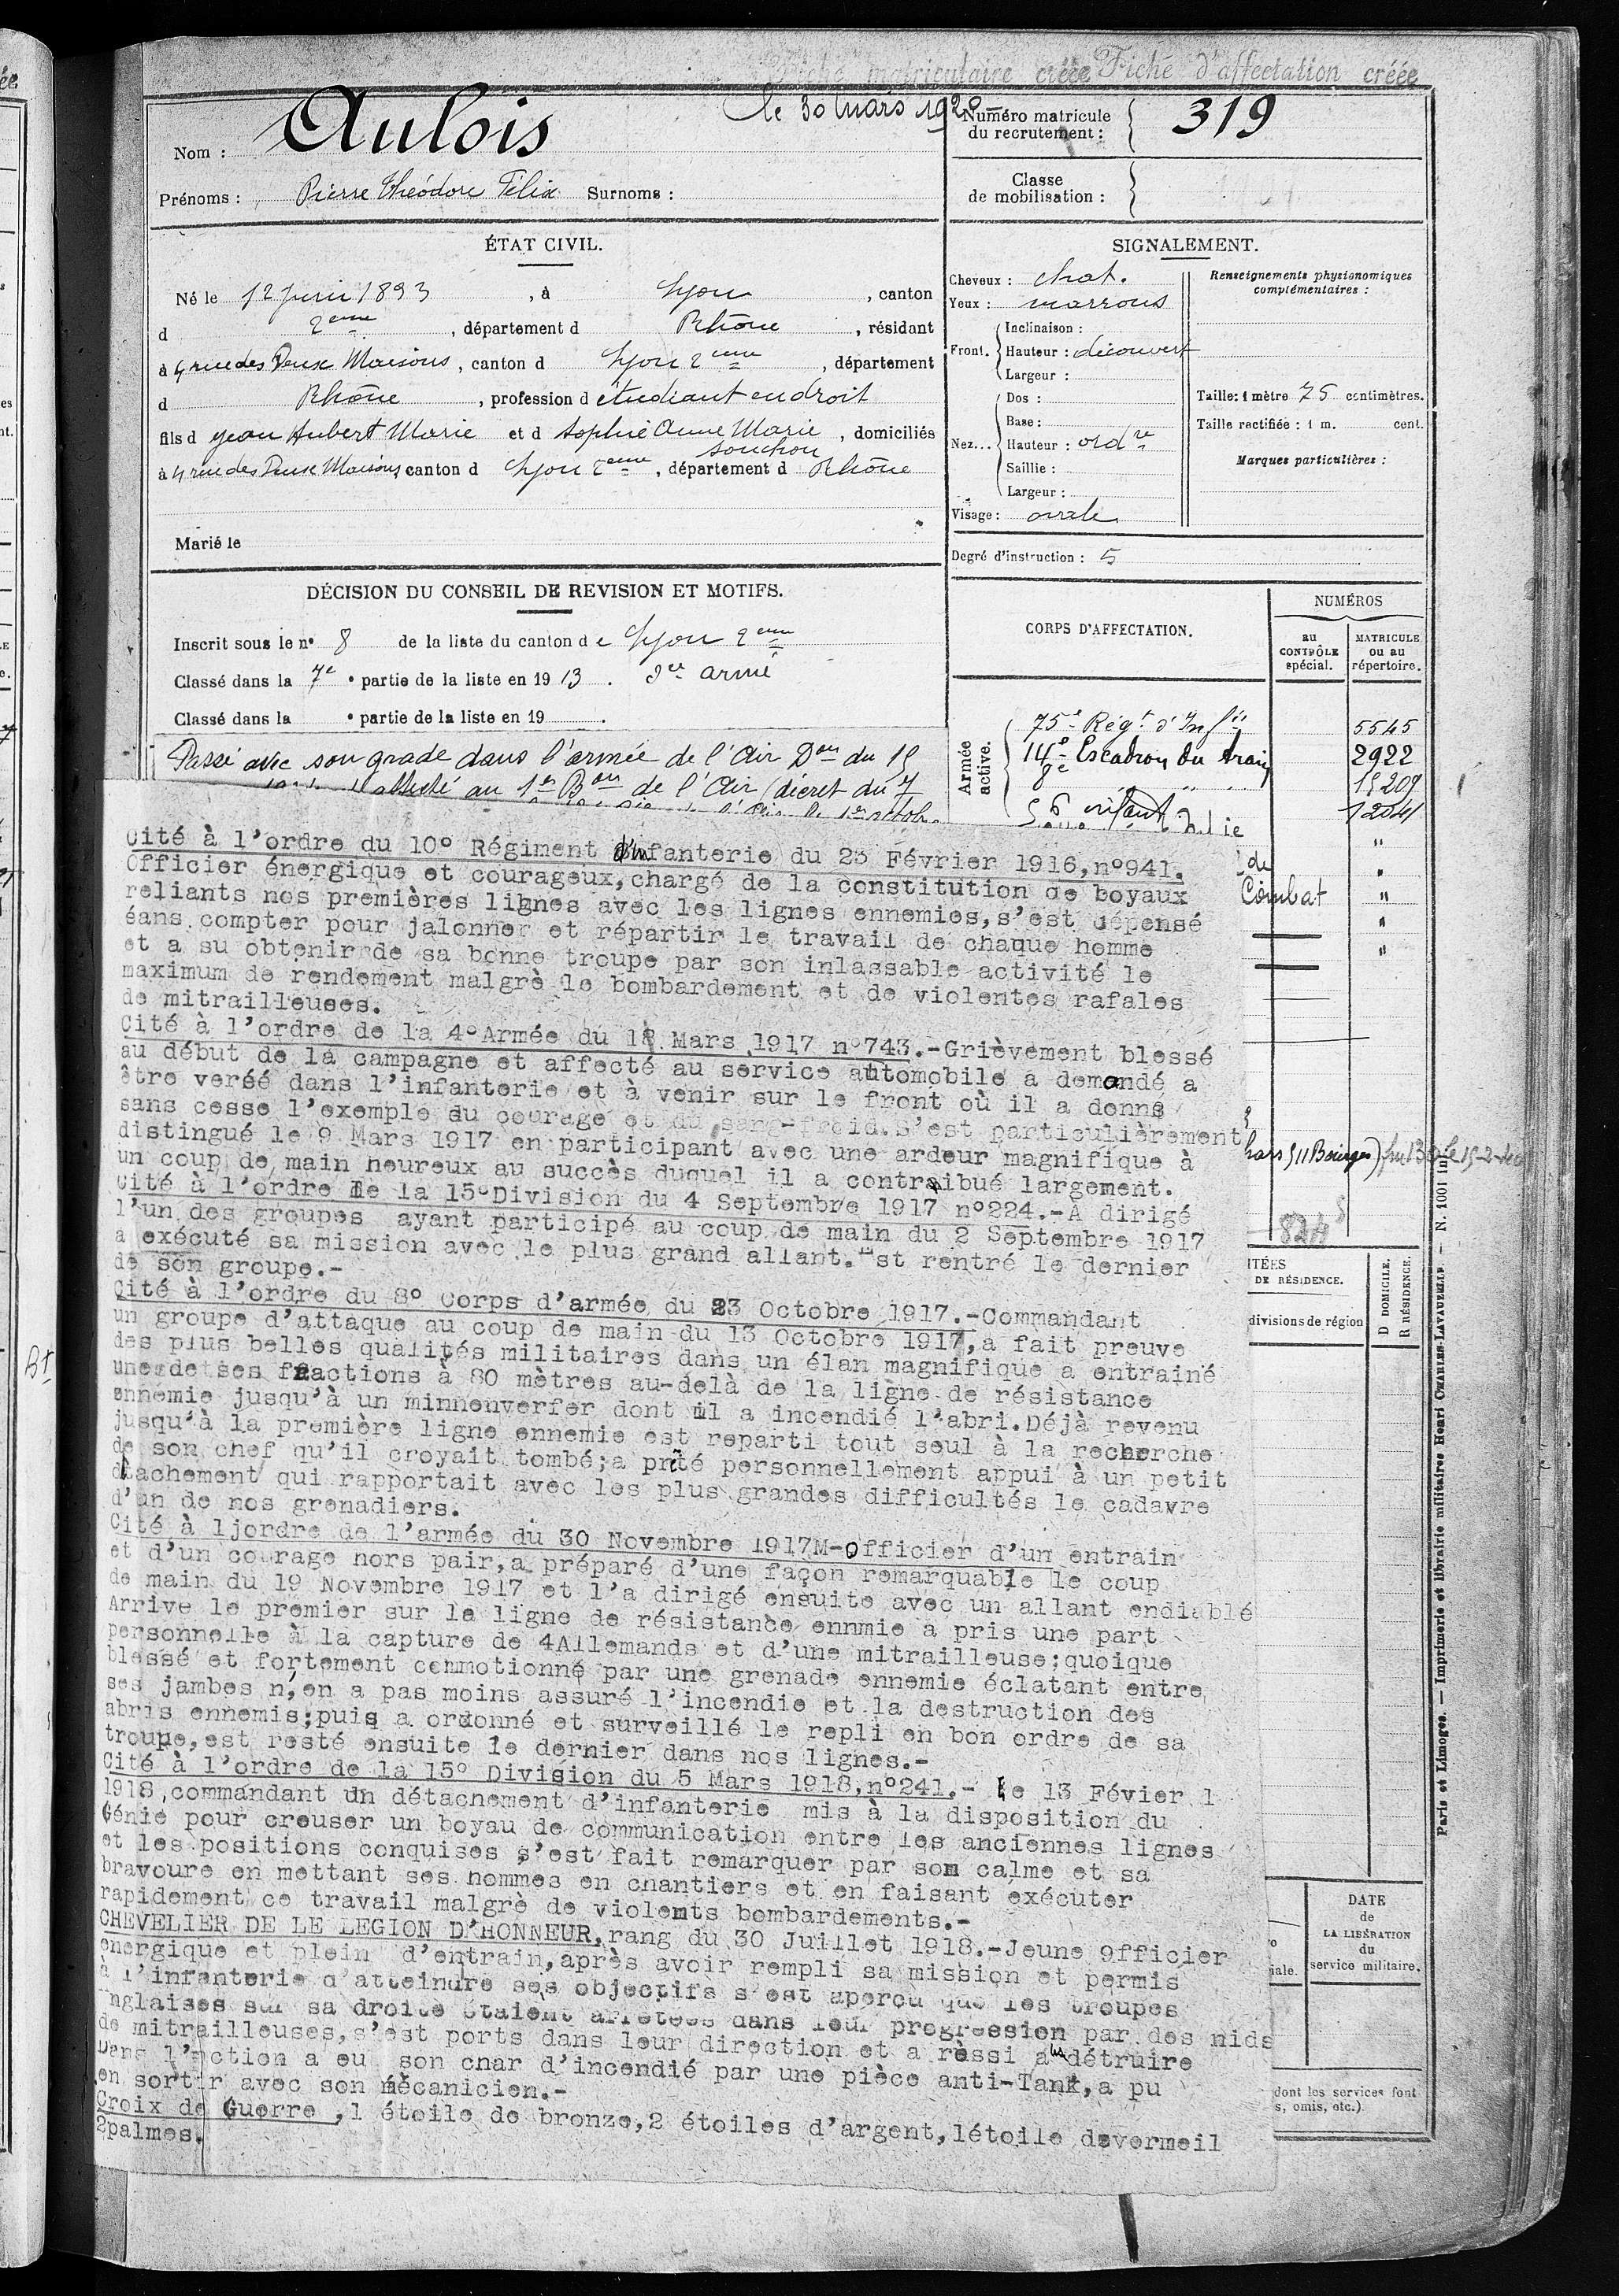 Fiche matriculaire créée Fiche d'affectation créée
le 30 Mars 192
Nom : Aulois
Prénoms : Pierre Théodore Félix Surnoms :
Numéro matricule
du recrutement : 319
Classe
de mobilisation :
ÉTAT CIVIL.
Né le 12 Juin 1893, à Lyon, canton
d 2eme, département d Rhône, résidant
à 4 rue des Deux Maisons, canton d Lyon 2eme, département
d Rhône, profession d étudiant en droit
fils d Jean Hubert Marie et d Sophie Anne Marie, domiciliés
Souchon
à 4 rue des Deux Maisons, canton d Lyon 2eme, département d Rhône
Marié le
SIGNALEMENT.
Cheveux : chat.
Yeux : marrons
Front. Inclinaison :
Hauteur : découvert
Largeur :
Nez... Dos :
Base :
Hauteur : ordre
Saillie :
Largeur :
Visage : ovale
Renseignements physionomiques
complémentaires :
Taille : 1 mètre 75 centimètres.
Taille rectifiée : 1 m. cent.
Marques particulières :
Degré d'instruction : 5
DÉCISION DU CONSEIL DE REVISION ET MOTIFS.
Inscrit sous le n° 8 de la liste du canton de Lyon 2eme
Classé dans la 7e • partie de la liste en 1913.
Classé dans la • partie de la liste en 19 .
Passé avec son grade dans l'armée de l'Air Don du 15
au 1er Bon de l'Air (décret du 7
CORPS D'AFFECTATION.
NUMÉROS
au
CONTRÔLE
spécial.
MATRICULE
ou au
répertoire.
Armée
active.
75e Régt d'Infie 5545
14e Escadron du train 2922
8e " " 15209
12041
"
de "
Combat "
"
"
Cité à l'ordre du 10° Régiment d'Infanterie du 23 Février 1916,n°941.
Officier énergique et courageux,chargé de la constitution de boyaux
reliants nos premières lignes avec les lignes ennemies,s'est dépensé
éans compter pour jalonner et répartir le travail de chaque homme
et a su obtenirrde sa bonne troupe par son inlassable activité le
maximum de rendement malgrè le bombardement et de violentes rafales
de mitrailleuses.
Cité à l'ordre de la 4°Armée du 18 Mars 1917 n°743.-Grièvement blessé
au début de la campagne et affecté au service automobile a demandé a
être versé dans l'infanterie et à venir sur le front où il a donné
sans cesse l'exemple du courage et du sang-froid.S'est particulièrement
distingué le 9 Mars 1917 en participant avec une ardeur magnifique à
un coup de main heureux au succès duquel il a contraibué largement.
Cité à l'ordre de la 15°Division du 4 Septembre 1917 n°224.-A dirigé
l'un des groupes ayant participé au coup de main du 2 Septembre 1917
a exécuté sa mission avec le plus grand allant.Est rentré le dernier
de son groupe.-
Cité à l'ordre du 8° Corps d'armée du 23 Octobre 1917.-Commandant
un groupe d'attaque au coup de main du 13 Octobre 1917,a fait preuve
des plus belles qualités militaires dans un élan magnifique a entrainé
une de ses fractions à 80 mètres au-delà de la ligne de résistance
ennemie jusqu'à un minnenverfer dont il a incendié l'abri.Déjà revenu
jusqu'à la première ligne ennemie est reparti tout seul à la recherche
de son chef qu'il croyait tombé;a prêté personnellement appui à un petit
détachement qui rapportait avec les plus grandes difficultés le cadavre
d'un de nos grenadiers.
Cité à ljordre de l'armée du 30 Novembre 1917M-Officier d'un entrain
et d'un courage hors pair,a préparé d'une façon remarquable le coup
de main du 19 Novembre 1917 et l'a dirigé ensuite avec un allant endiablé
Arrive le premier sur la ligne de résistance ennmie a pris une part
personnelle à la capture de 4Allemands et d'une mitrailleuse;quoique
blessé et fortement commotionné par une grenade ennemie éclatant entre
ses jambes n,en a pas moins assuré l'incendie et la destruction des
abris ennemis;puis a ordonné et surveillé le repli en bon ordre de sa
troupe,est resté ensuite le dernier dans nos lignes.-
Cité à l'ordre de la 15° Division du 5 Mars 1918,n°241.- Le 13 Févier 1
1918,commandant un détachement d'infanterie mis à la disposition du
Génie pour creuser un boyau de communication entre les anciennes lignes
et les positions conquises s'est fait remarquer par son calme et sa
bravoure en mettant ses hommes en chantiers et en faisant exécuter
rapidement ce travail malgrè de violents bombardements.-
CHEVELIER DE LE LEGION D'HONNEUR,rang du 30 Juillet 1918.-Jeune officier
energique et plein d'entrain,après avoir rempli sa mission et permis
à l'infanterie d'atteindre ses objectifs s'est aperçu que les troupes
anglaises sur sa droite étaient arrêtées dans leur progression par des nids
de mitrailleuses,s'est ports dans leur direction et a rèssi à les détruire
Dans l'action a eu son char d'incendié par une pièce anti-Tank,a pu
en sortir avec son mécanicien.-
Croix de Guerre ,1 étoile de bronze,2 étoiles d'argent,1étoile devermeil
2palmes.
chars 511 Bourges)
824
ITÉES
DE RÉSIDENCE.
divisions de région
D DOMICILE.
R RÉSIDENCE.
DATE
de
LA LIBÉRATION
du
service militaire.
iale.
dont les services font
s, omis, etc.)
Paris et Limoges. — Imprimerie et librairie militaires Henri CHARLES-LAVAUZELLE. — N. 1001 in
Bt